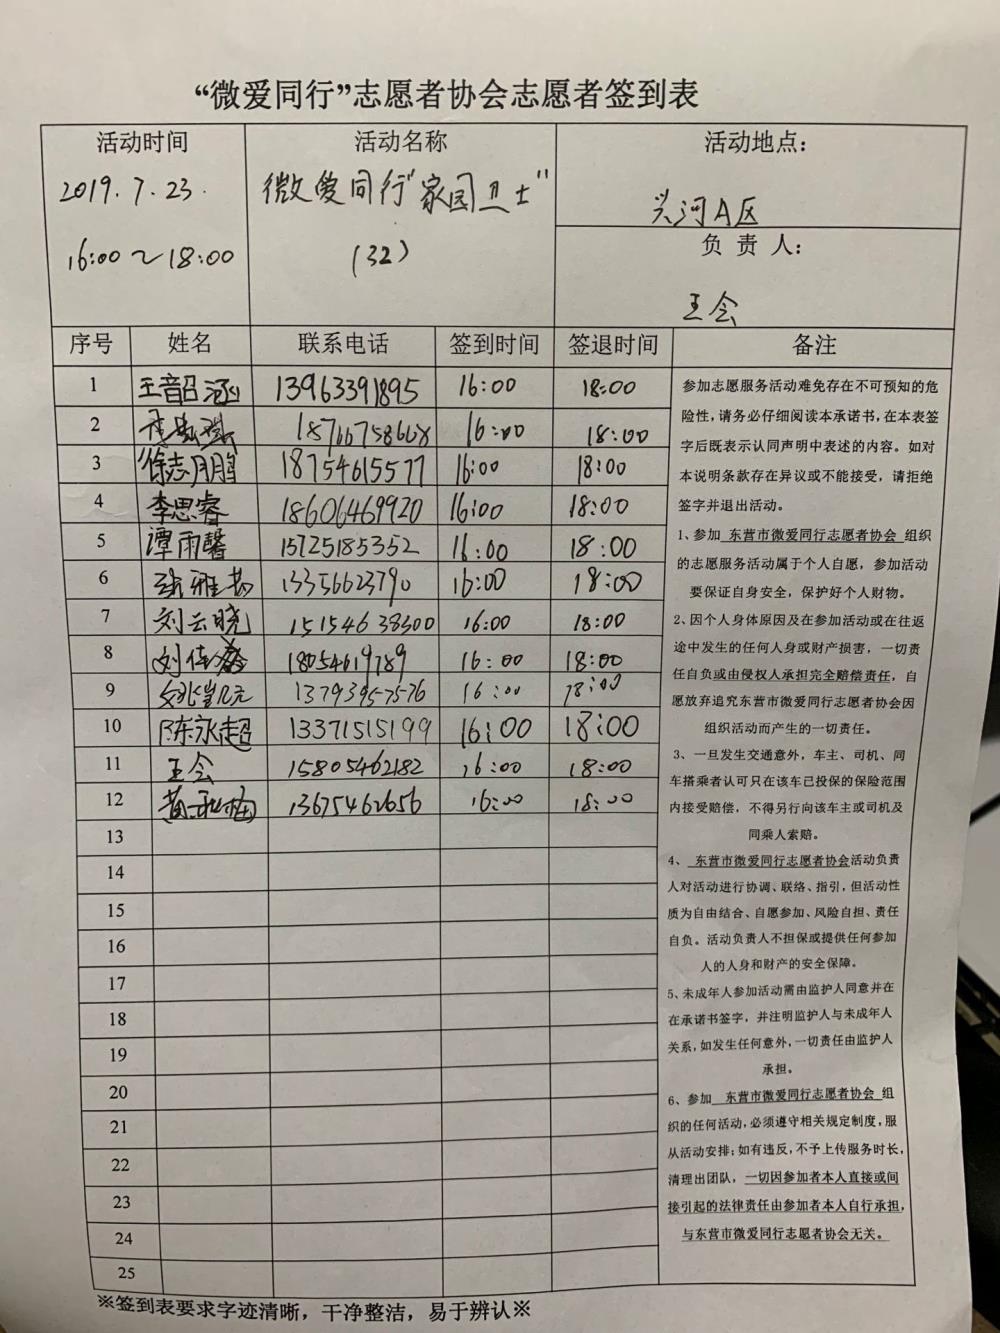 “微爱同行”志愿者协会志愿者签到表
活动时间
2019.7.23.
16:00～18:00
活动名称
微爱同行“家园卫士”
(32)
活动地点：
兴河A区
负 责 人：
王会
序号 姓名 联系电话 签到时间 签退时间 备注
1 王韶涵 13963391895 16:00 18:00
2 18766758668 16:00 18:00
3 徐志鹏 18754615577 16:00 18:00
4 李思睿 18606469920 16:00 18:00
5 谭雨馨 15725185352 16:00 18:00
6 13356623790 16:00 18:00
7 刘云晓 15154638300 16:00 18:00
8 刘佳鑫 18054619789 16:00 18:00
9 姚皆元 13793957576 16:00 18:00
10 陈永超 13371515199 16:00 18:00
11 王会 15805462182 16:00 18:00
12 黄秋梅 13675462656 16:00 18:00
13
14
15
16
17
18
19
20
21
22
23
24
25
参加志愿服务活动难免存在不可预知的危
险性，请务必仔细阅读本承诺书，在本表签
字后既表示认同声明中表述的内容。如对
本说明条款存在异议或不能接受，请拒绝
签字并退出活动。
1、参加 东营市微爱同行志愿者协会 组织
的志愿服务活动属于个人自愿，参加活动
要保证自身安全，保护好个人财物。
2、因个人身体原因及在参加活动或在往返
途中发生的任何人身或财产损害，一切责
任自负或由侵权人承担完全赔偿责任，自
愿放弃追究东营市微爱同行志愿者协会因
组织活动而产生的一切责任。
3、一旦发生交通意外，车主、司机、同
车搭乘者认可只在该车已投保的保险范围
内接受赔偿，不得另行向该车主或司机及
同乘人索赔。
4、 东营市微爱同行志愿者协会活动负责
人对活动进行协调、联络、指引，但活动性
质为自由结合、自愿参加、风险自担、责任
自负。活动负责人不担保或提供任何参加
人的人身和财产的安全保障。
5、未成年人参加活动需由监护人同意并在
在承诺书签字，并注明监护人与未成年人
关系，如发生任何意外，一切责任由监护人
承担。
6、参加 东营市微爱同行志愿者协会 组
织的任何活动，必须遵守相关规定制度，服
从活动安排；如有违反，不予上传服务时长，
清理出团队，一切因参加者本人直接或间
接引起的法律责任由参加者本人自行承担，
与东营市微爱同行志愿者协会无关。
※签到表要求字迹清晰，干净整洁，易于辨认※